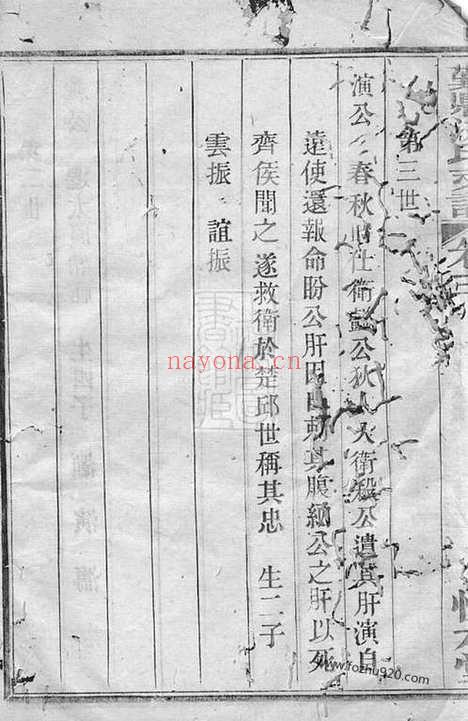 第三世
演公 春秋時仕衛懿公狄人入衛殺公遺其肝演自
遠使還報命盼公肝因自刺其腹納公之肝以死
齊侯聞之遂救衛於楚邱世稱其忠 生二子
雲振 誼振
nayona.cn
www.fozhu920.com